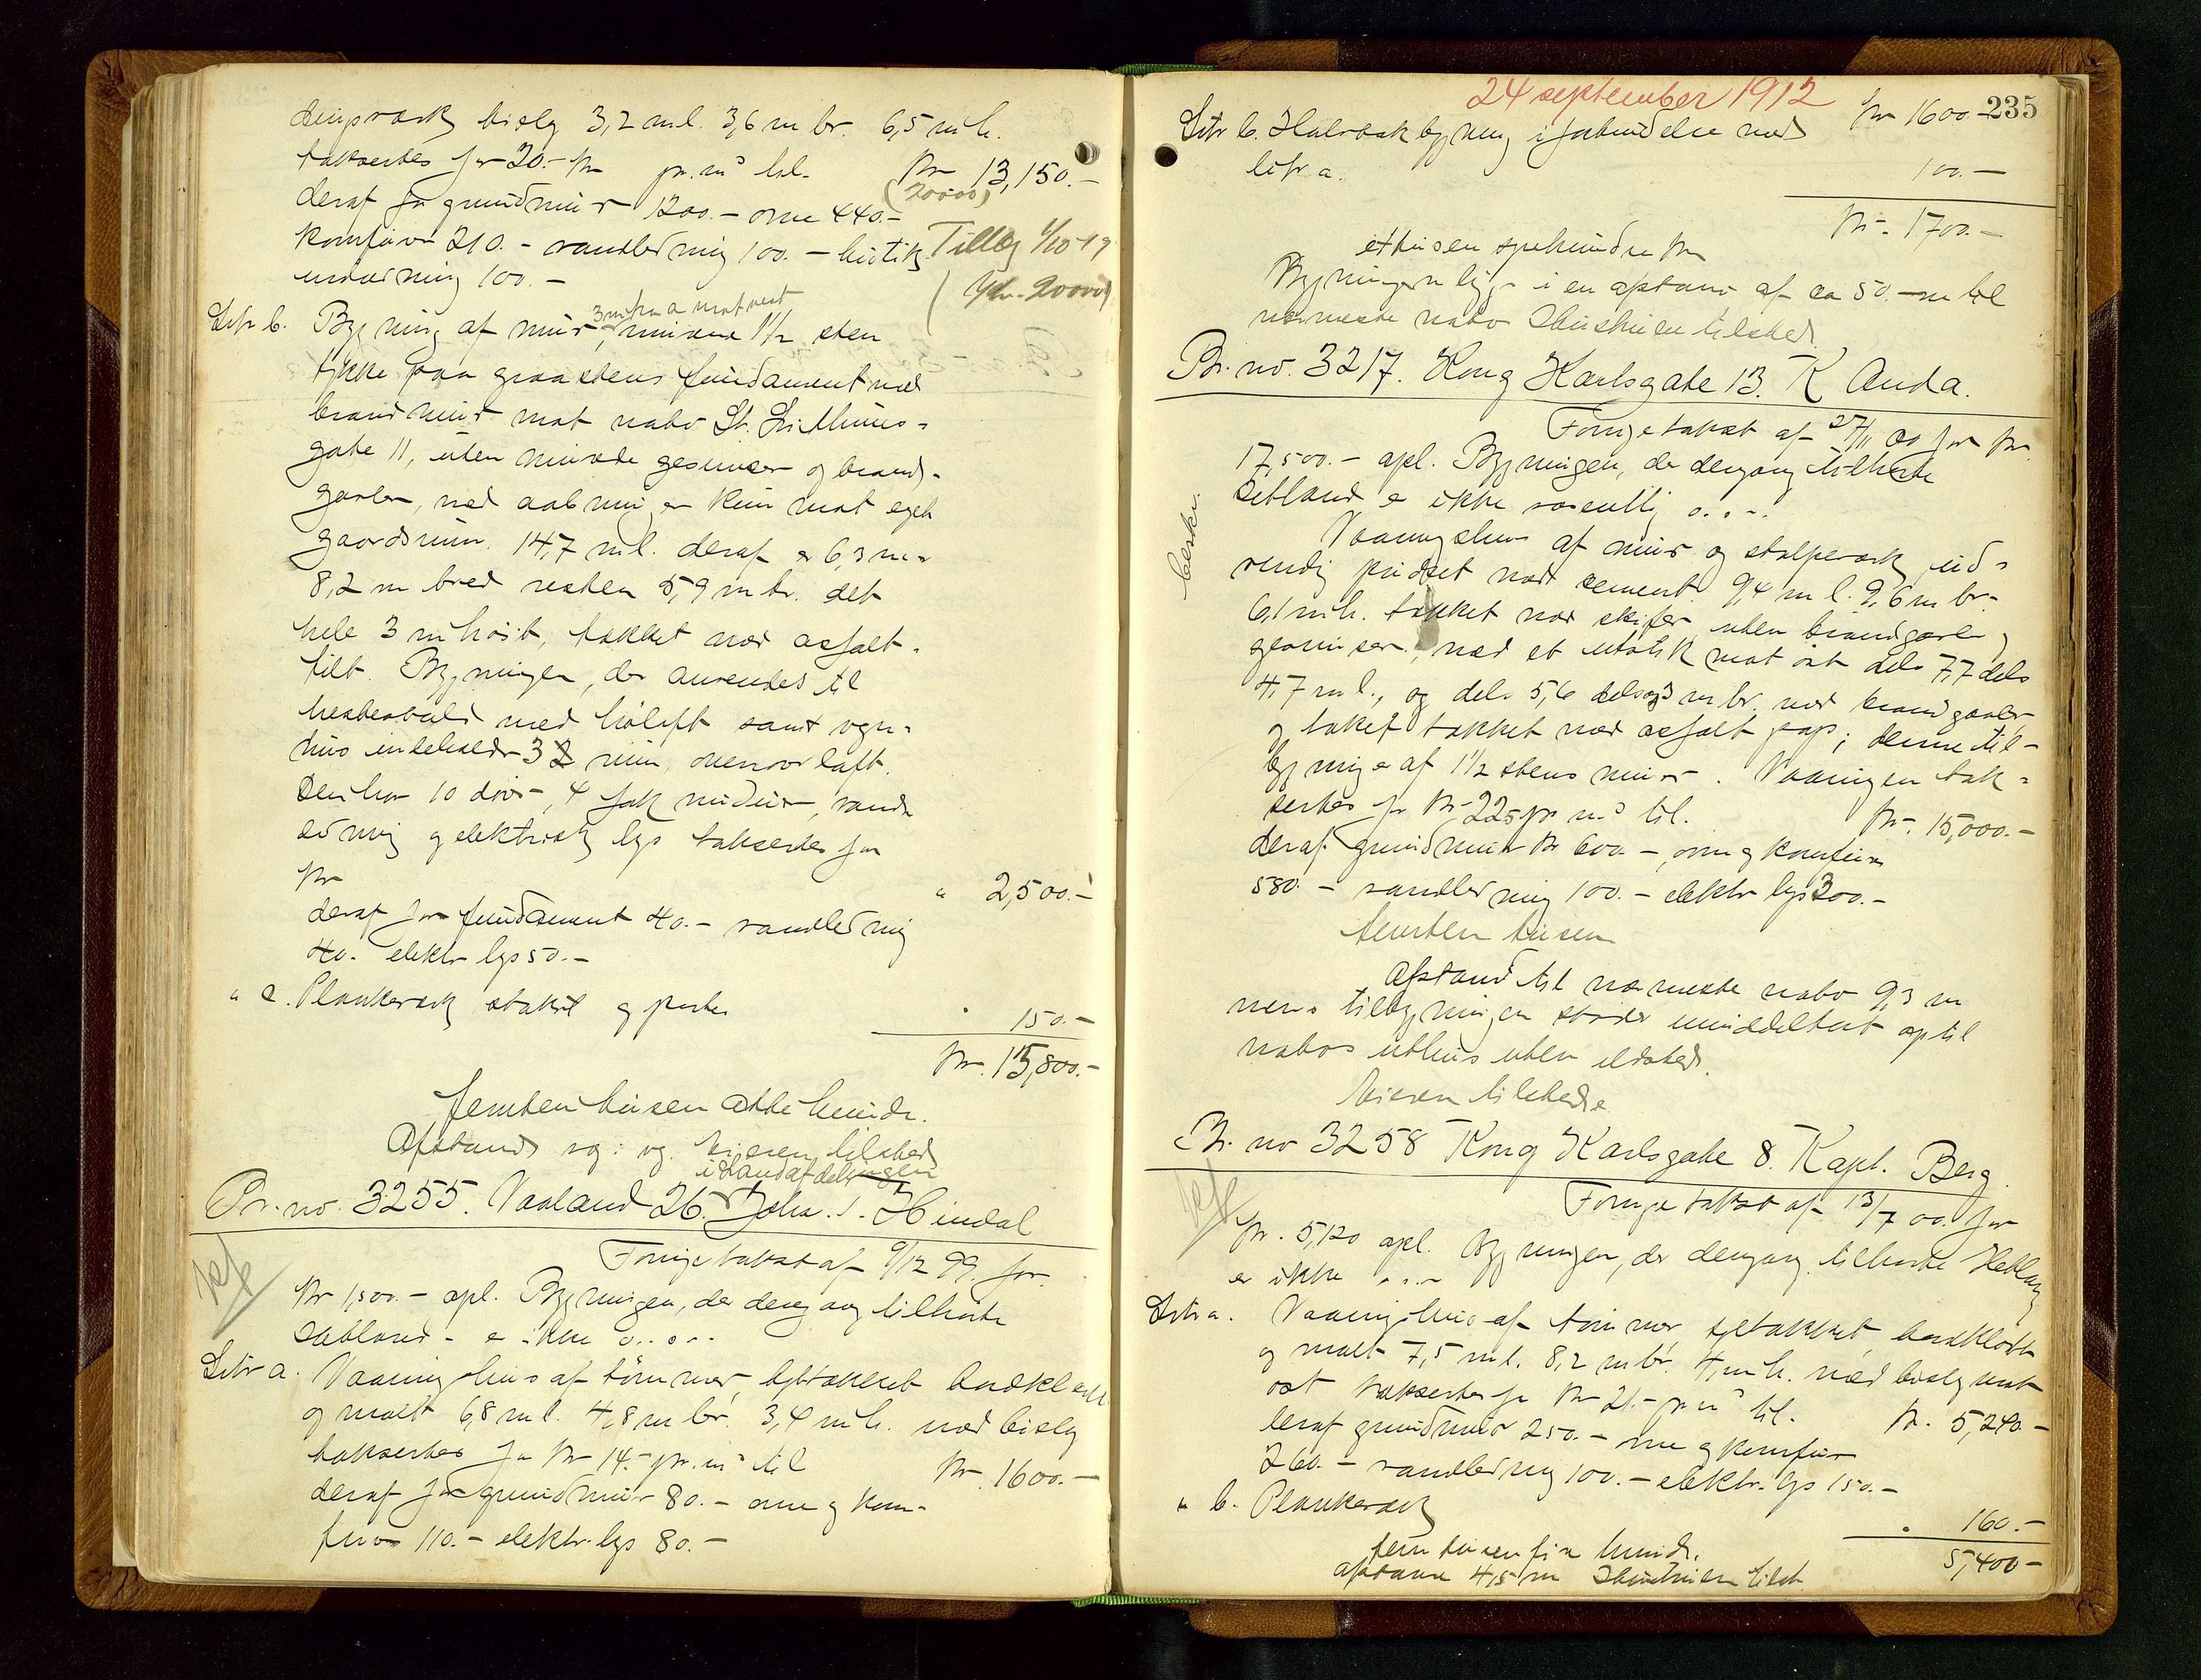 bislag 3,2 m l. 3,6 m br. 6,5 m h.
takseres for 20.- kr pr. m³ til. kr 13,150.-
(20000)
deraf for grundmur 1200.- ovne 440.-
komfurer 210.- vandledning 100.- butik
Tillæg 1/10-19
indredning 100.-
(Kr. 20000)
Litr b. Bygning af mur, murene 1½ sten
3 m fra a mot vest
tykke paa graastens fundament med
brandmur mot nabo St.
gate 11, uten murede gesimser og brand-
gavler, med aabninger kun mot eget
gaardsrum. 14,7 m l. deraf er 6,3 m.
8,2 m bred resten 5,9 m br. det
hele 3 m høit, tækket med asfalt-
filt. Bygningen, der anvendes til
hestestald med høloft samt vogn-
hus indeholder 3 rum, ovenover loft.
Den har 10 døre, 4 fak vinduer, vand-
ledning og elektrisk lys takseres for
kr " 2,500.-
deraf for fundament 40.- vandledning
40.- elektr lys 50.-
" c. Plankeverk stakit og porter " 150.-
Kr. 15,800.-
femten tusen otte hundr.
Afstand og eieren tilsted
i Strandafdelingen
Br. no. 3255. Vaaland 26. Johs. S. Hindal
Forrige takst af 9/12 99. for
Kr 1,500.- opl. Bygningen, der dengang tilhørte
er ikke o..o..
Litr a. Vaaningshus af tømmer, tegltækket bordklædt
og malt 6,8 m l. 4,8 m br. 3,4 m h. med bislag
takseres for kr 14.- pr. m³ til kr. 1600.-
deraf for grundmur 80.- ovne og kom-
fur 110.- elektr. lys 80.-
24 september 1912
235
Litr b. Halvtakbygning i forbindelse med
kr 1600.-
litr a. 100.-
Kr. 1700.-
ettusen syvhundre kr
Bygningen ligger i en afstand af ca 50.- m til
nærmeste nabo Hustruen tilsted.
Br. no. 3217. Kong Karlsgate 13. K Anda.
Forrige takst af 27/11 00 for kr.
17,500.- opl. Bygningen, der dengang tilhørte
er ikke væsentlig o...
beskr.
Vaaningshus af mur og stolpeverk, ud-
vendig pudset med cement 9,4 m l. 9,6 m br.
6,1 m h. tækket med skifer uten brandgavler og
gesimser, med et utstik mot øst dels 7,7 dels
4,7 m l., og dels 5,6 dels 3 m br. med brandgavler
og taket tækket med asfalt pap; denne til-
bygning er af 1½ stens mur. Vaaningen tak-
seres for kr. 22 pr m³ til. Kr. 15,000.-
deraf grundmur kr 600.-, ovne og komfurer
580.- vandledning 100.- elektr lys 300.-
femten tusen
Afstand til nærmeste nabo 9,3 m
mens tilbygningen støder umiddelbart op til
nabos uthus uten ildsted.
Eieren tilstede
Br. no 3258 Kong Karlsgate 8. Kapt. Berg.
Forrige takst af 13/7 00. for
Kr. 5,120 opl. Bygningen, der dengang tilhørte
er ikke o...
Litr a. Vaaningshus af tømmer, tegltækket, bordklædt
og malt 7,5 m l. 8,2 m br. 4, m h. med bislag mot
øst takseres for kr 21.- pr m³ til. Kr. 5,240.-
deraf grundmur 250.- ovne og komfur
260.- vandledning 100.- elektr. lys 150.-
" b. Plankeverk " 160.-
fem tusen fire hundr. 5,400-
afstand 4,5 m Hustruen tilst